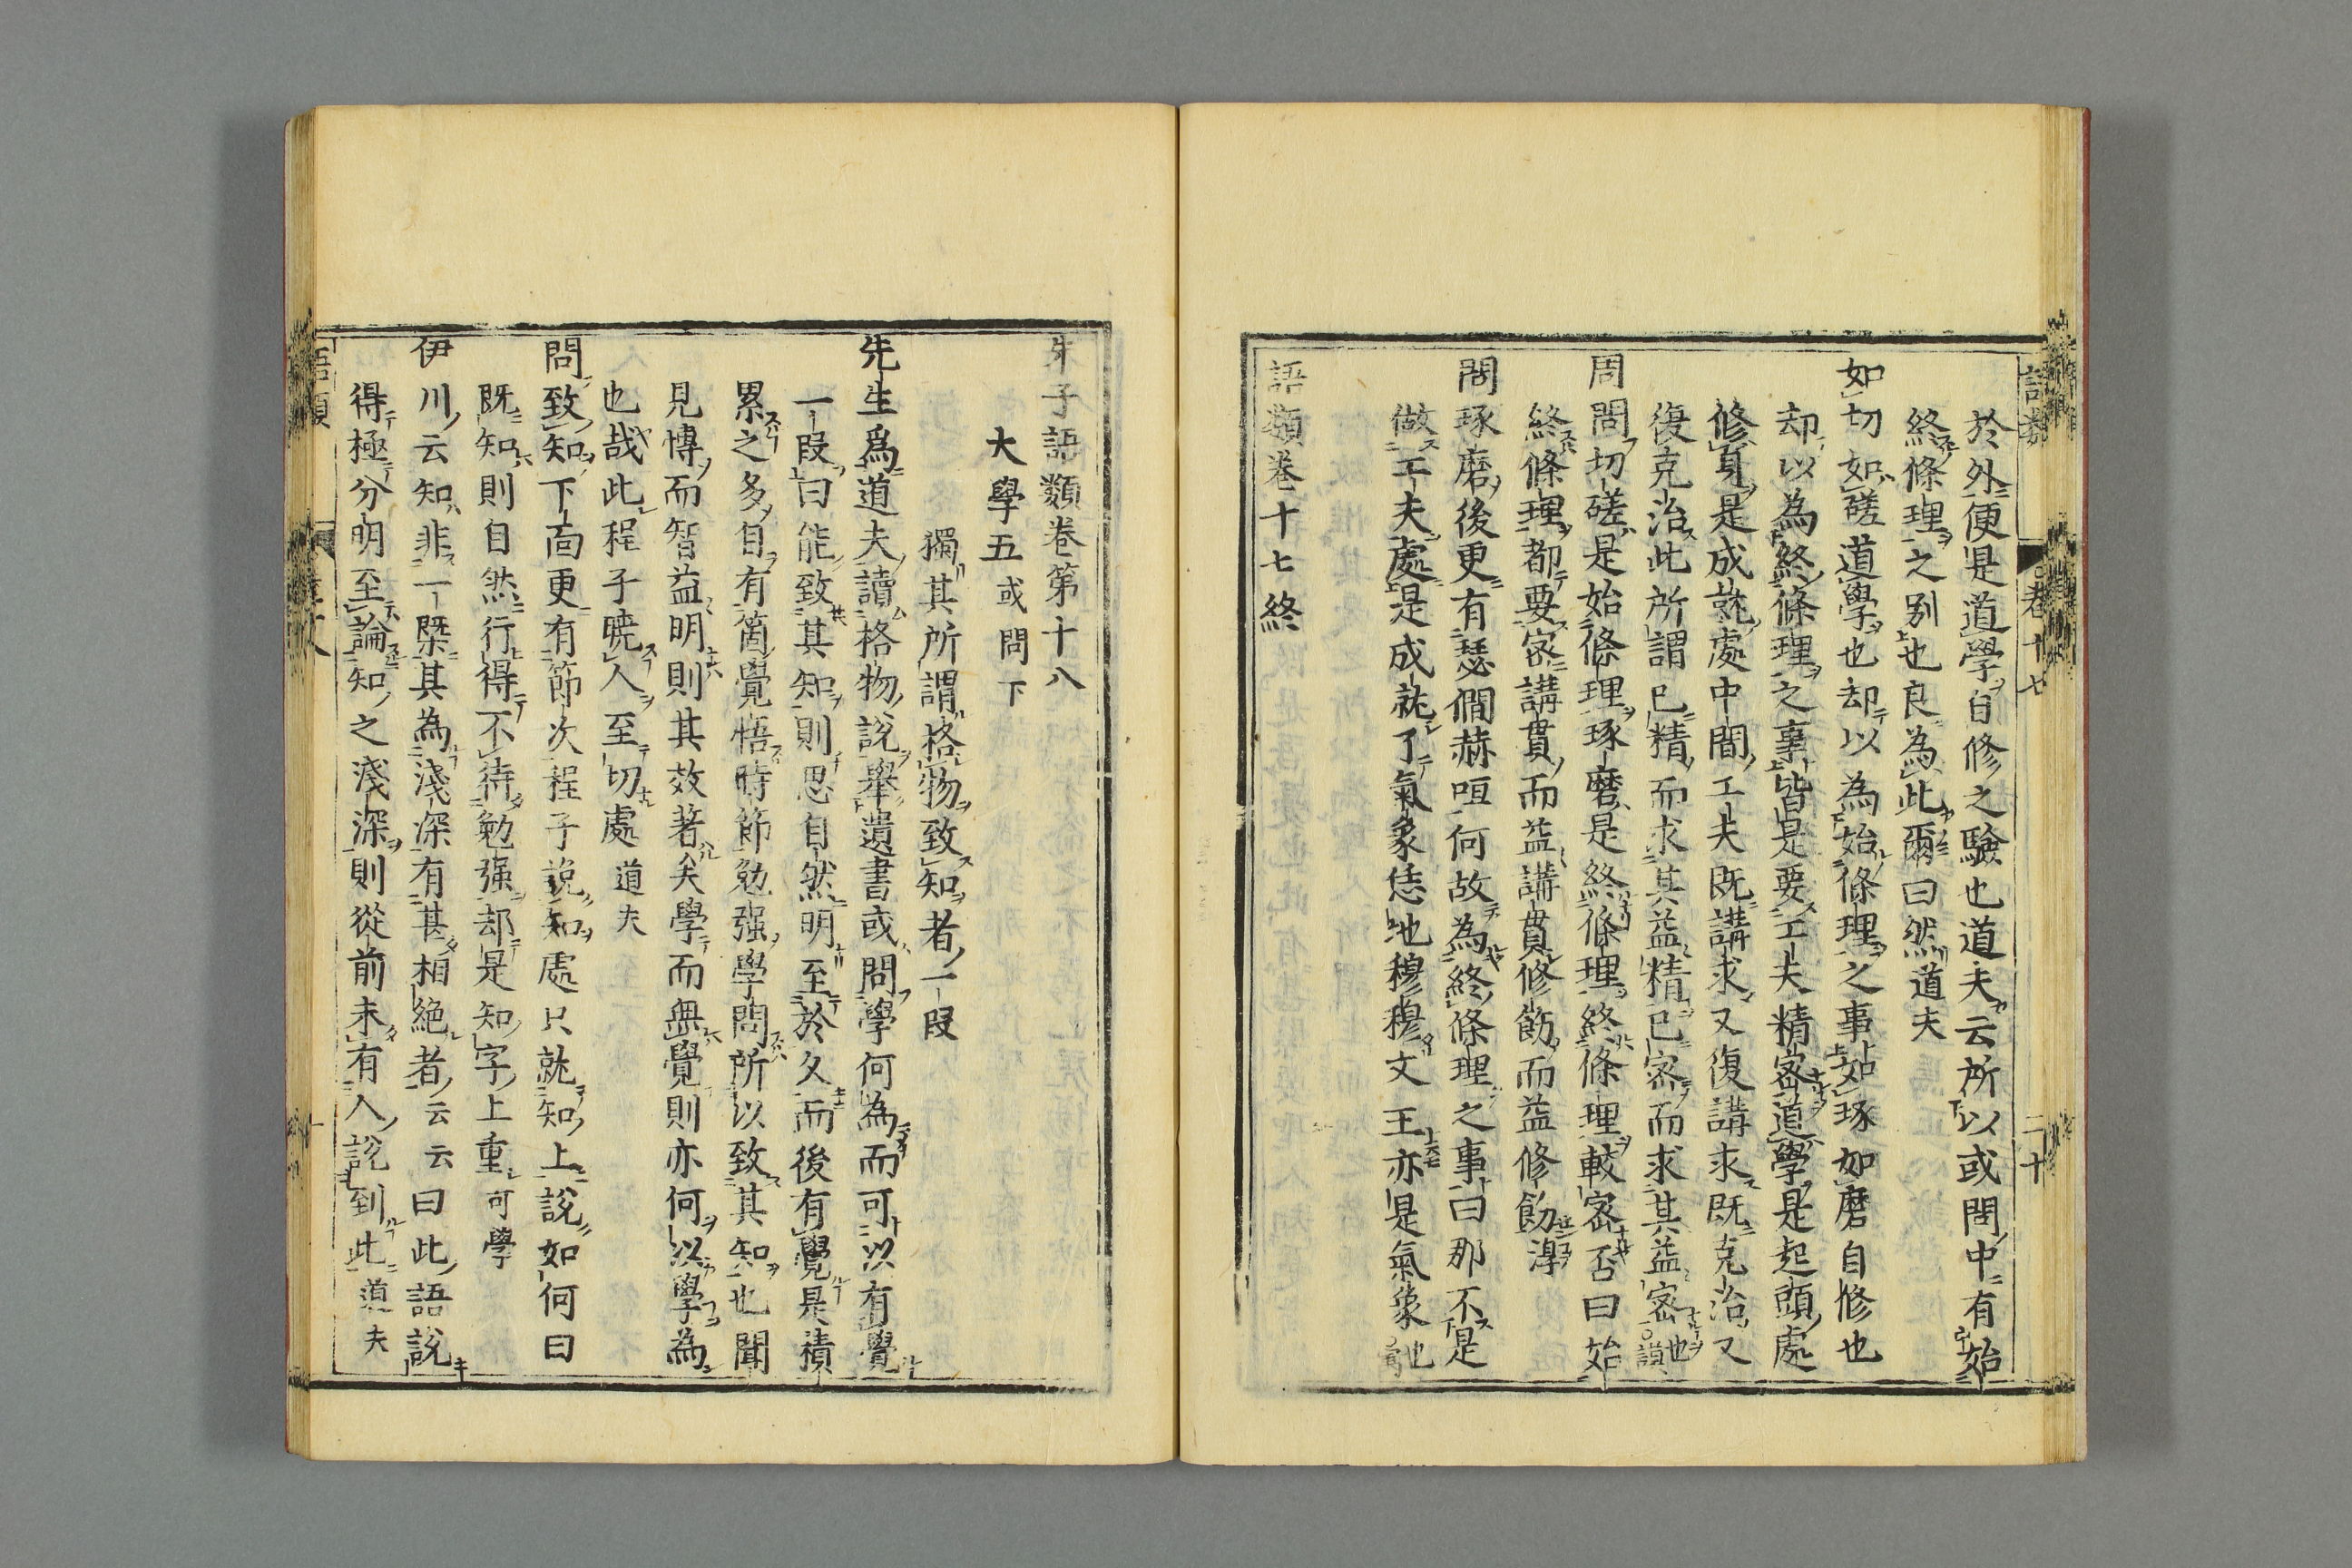 於外便是道學自修之驗也道夫云所以或問中有始
終條理之别也良為此爾曰然道夫
如切如磋道學也却以為始條理之事如琢如磨自修也
却以為終條理之事皆是要工夫精密道學是起頭處
修身是成就處中間工夫既講求又復講求既克治又
復克治此所謂已精而求其益精已密而求其益密也
周問切磋是始條理琢磨是終條理終條理較密否曰始
終條理都要密講貫而益講貫修飭而益修飭淳
問琢磨後更有瑟僩赫咺何故為終條理之事曰那不是
做工夫處是成就了氣象恁地穆穆文王亦是氣象也
語類卷十七終
卷十七
二十
朱子語類卷第十八
大學五或問下
獨其所謂格物致知者一段
先生為道夫讀格物說舉遺書或問學何為而可以有覺
一段曰能致其知則思自然明至於久而後有覺是積
累之多自有箇覺悟時節勉强學問所以致其知也聞
見博而智益明則其效著矣學而無覺則亦何以學為
也哉此程子曉人至切處道夫
問致知下面更有節次程子說知處只就知上說如何曰
既知則自然行得不待勉强却是知字上重可學
伊川云知非一槩其為淺深有甚相絶者云云曰此語說
得極分明至論知之淺深則從前未有人說到此道夫
語類